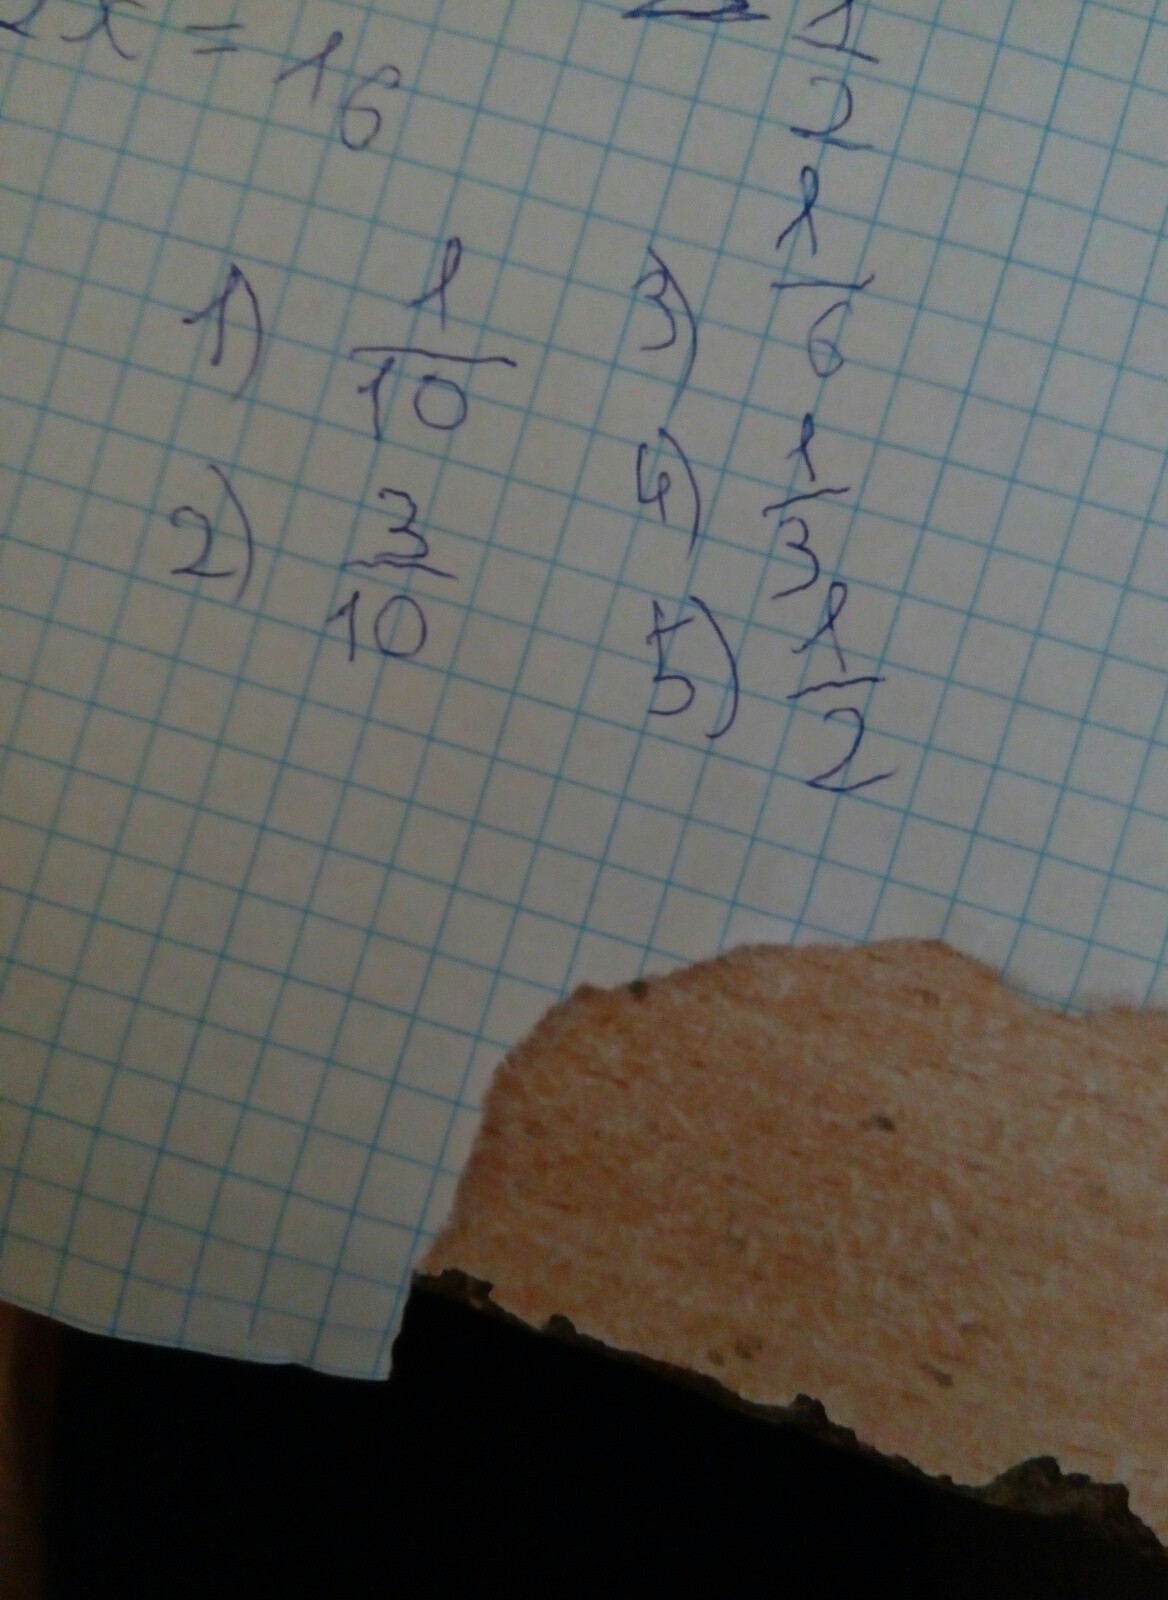 2x = 16
1/2
1) 1/10
2) 3/10
3) 1/6
4) 1/3
5) 1/2